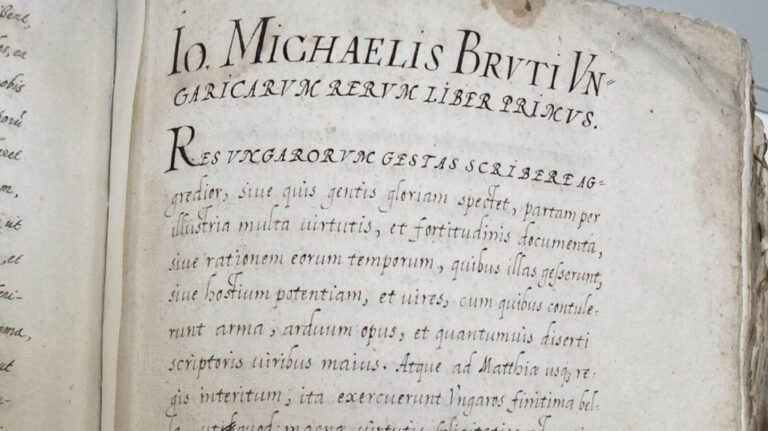 IO. MICHAELIS BRVTI VN-
GARICARVM RERVM LIBER PRIMVS.
RES VNGARORVM GESTAS SCRIBERE AG-
gredior, siue quis gentis gloriam spectet, partam per
illustria multa virtutis, et fortitudinis documenta,
siue rationem eorum temporum, quibus illas gesserunt,
siue hostium potentiam, et vires, cum quibus contule-
runt arma, arduum opus, et quantumuis diserti
scriptoris viribus maius. Atque ad Matthiæ usq; re-
gis interitum, ita exercuerunt Vngaros finitima bel-
la, magna virtutis